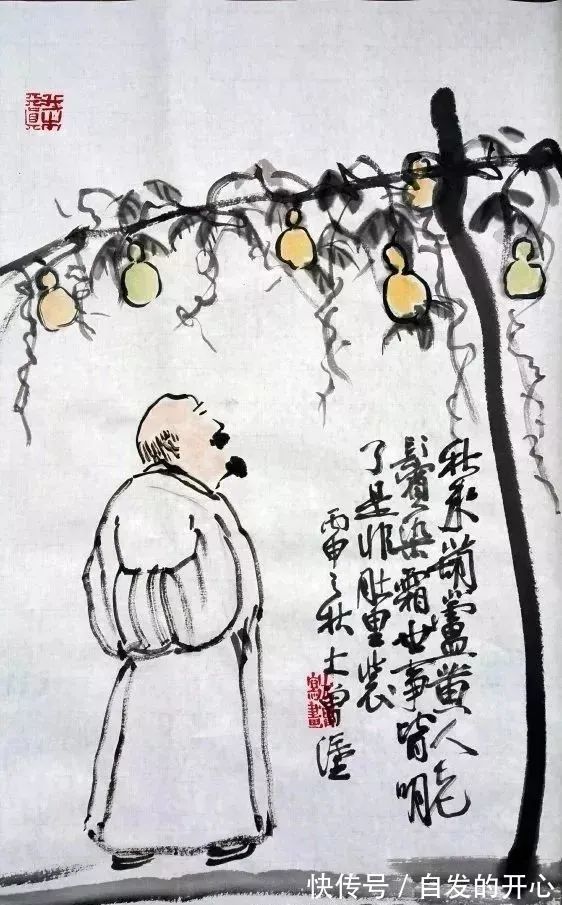 秋来葫蘆黄人老
鬢染霜世事皆明
了是非肚里装
丙申之秋
快传号 / 自发的开心